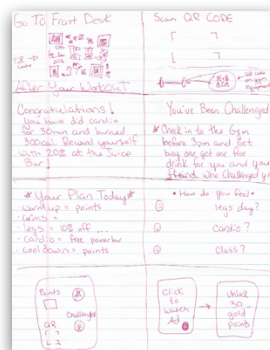 Go To Front Desk
QR CODE
After Your Workout
Scan QR CODE
QR code on gym equipment
Congratulations!
you have did cardio
for 30min and burned
300cal. Reward yourself
with 20% at the Juice
Bar!
You've Been Challenged
Check in to the Gym
before 3pm and get
buy one get one free
drink for you and your
friend who challenged you
Your Plan Today
- warm up = points
- arms =
- legs = 10% off ...
- cardio = free powerbar
- cool down = points
How do you feel
legs day?
Cardio?
Class?
Points
Challenge
QR
Click
to
watch
Ad
Unlock
30
gold
points